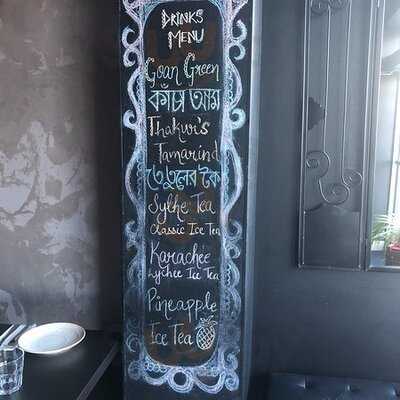 DRINKS
MENU
Goan Green
কাঁচা আম
Thakur's
Tamarind
তেতুলের টক
Sylhe Tea
Classic Ice Tea
Karachee
Lychee Ice Tea
Pineapple
Ice Tea